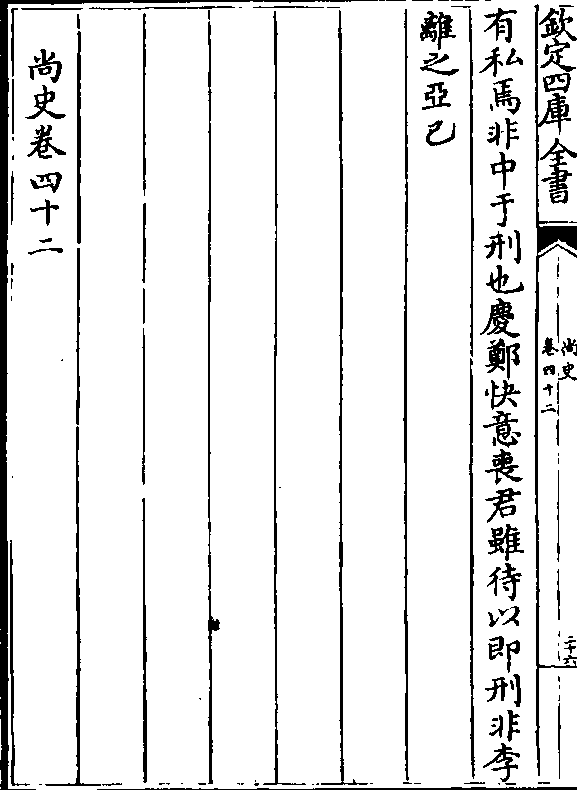 欽定四庫全書
尚史
卷四十二
二十六
有私焉非中于刑也慶鄭快意喪君雖待以即刑非李
離之亞已
尚史卷四十二